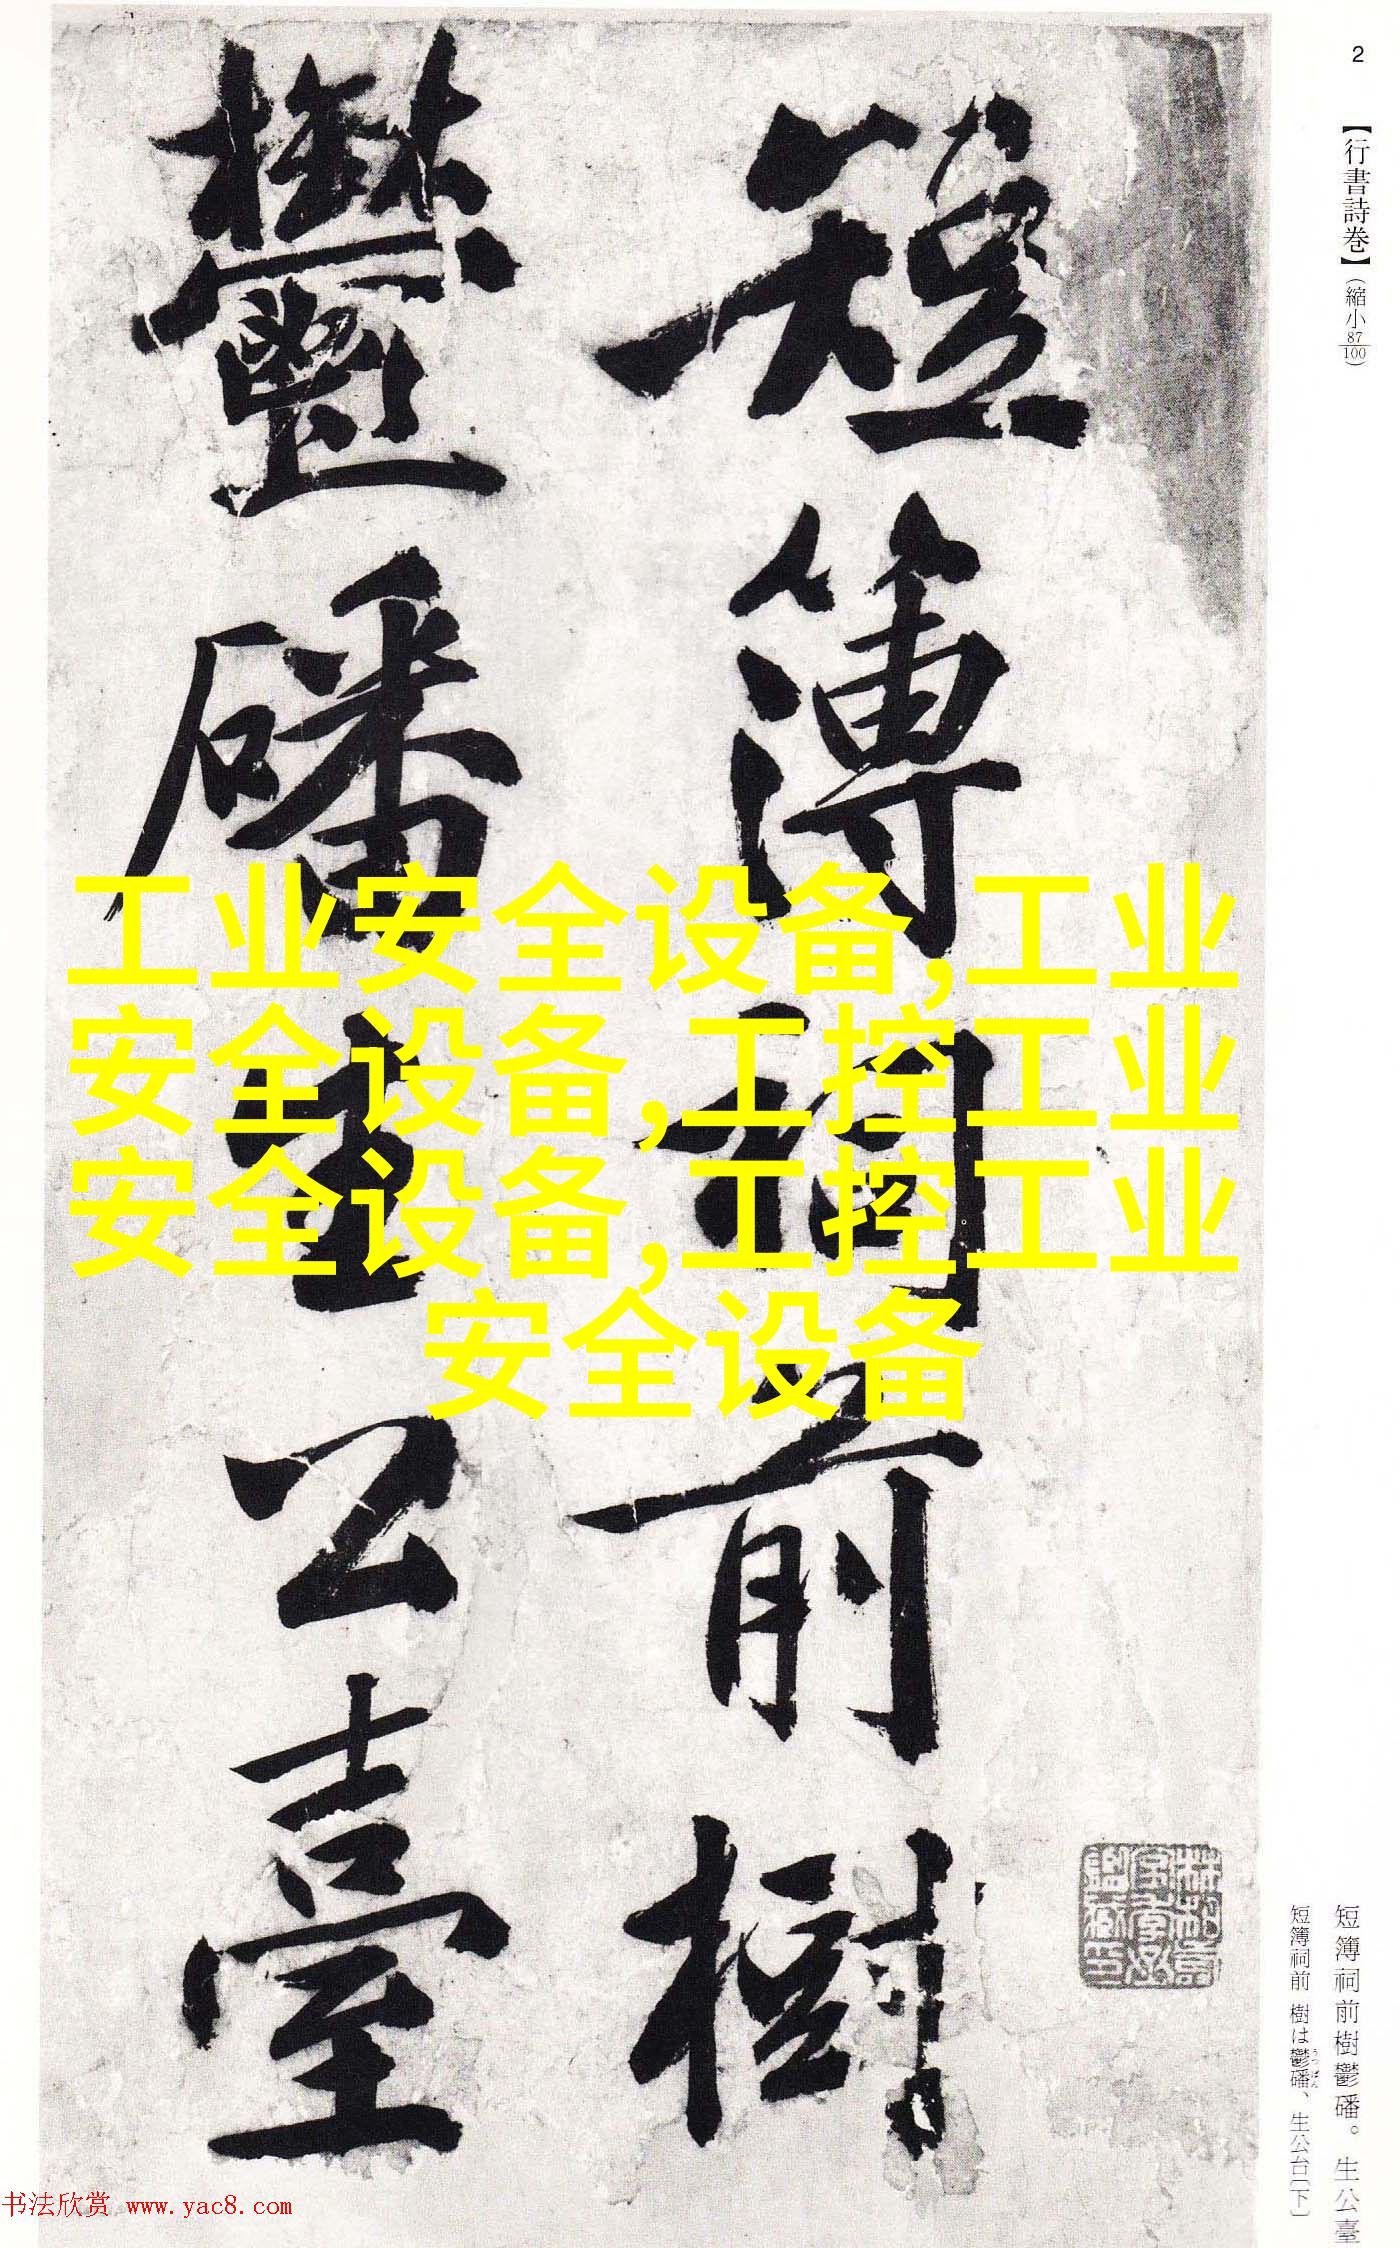 2
【行書詩巻】（縮小87/100）
短簿祠前樹
鬱磻生公臺
工业安全设备,工业
安全设备,工控工业
安全设备,工控工业
安全设备
短簿祠前樹鬱磻。生公臺
短簿祠前 樹は鬱磻、生公台〔下〕
うつ ばん
书法欣赏 www.yac8.com